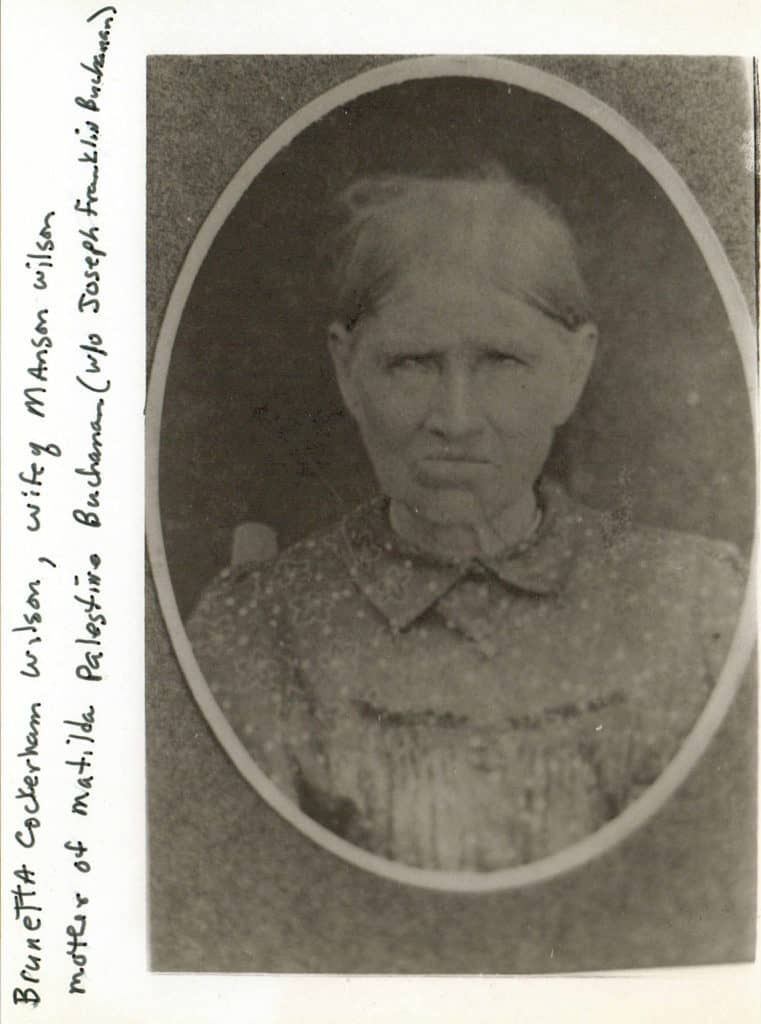 Brunetta Cockerham Wilson, wife of Manson Wilson
mother of Matilda Palestine Buchanan (w/o Joseph Franklin Buchanan)